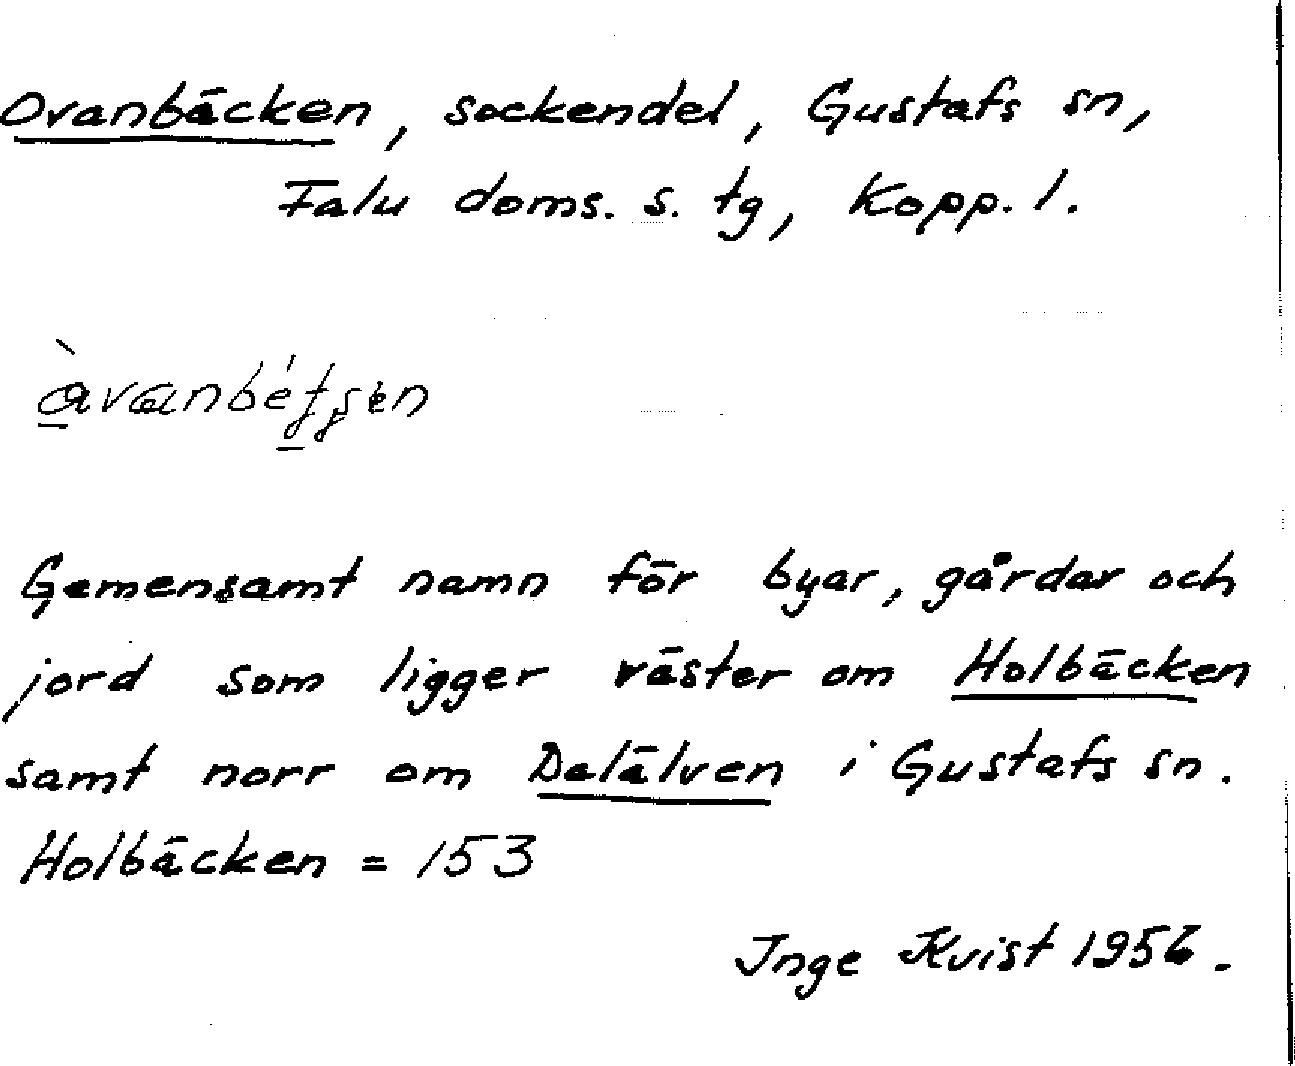 Ovanbäcken, sockendel, Gustafs sn,
Falu doms. s. tg, Kopp. l.
Gemensamt namn för byar, gårdar och
jord som ligger väster om Holbäcken
samt norr om Dalälven i Gustafs sn.
Holbäcken = 153
Inge Kvist 1956.